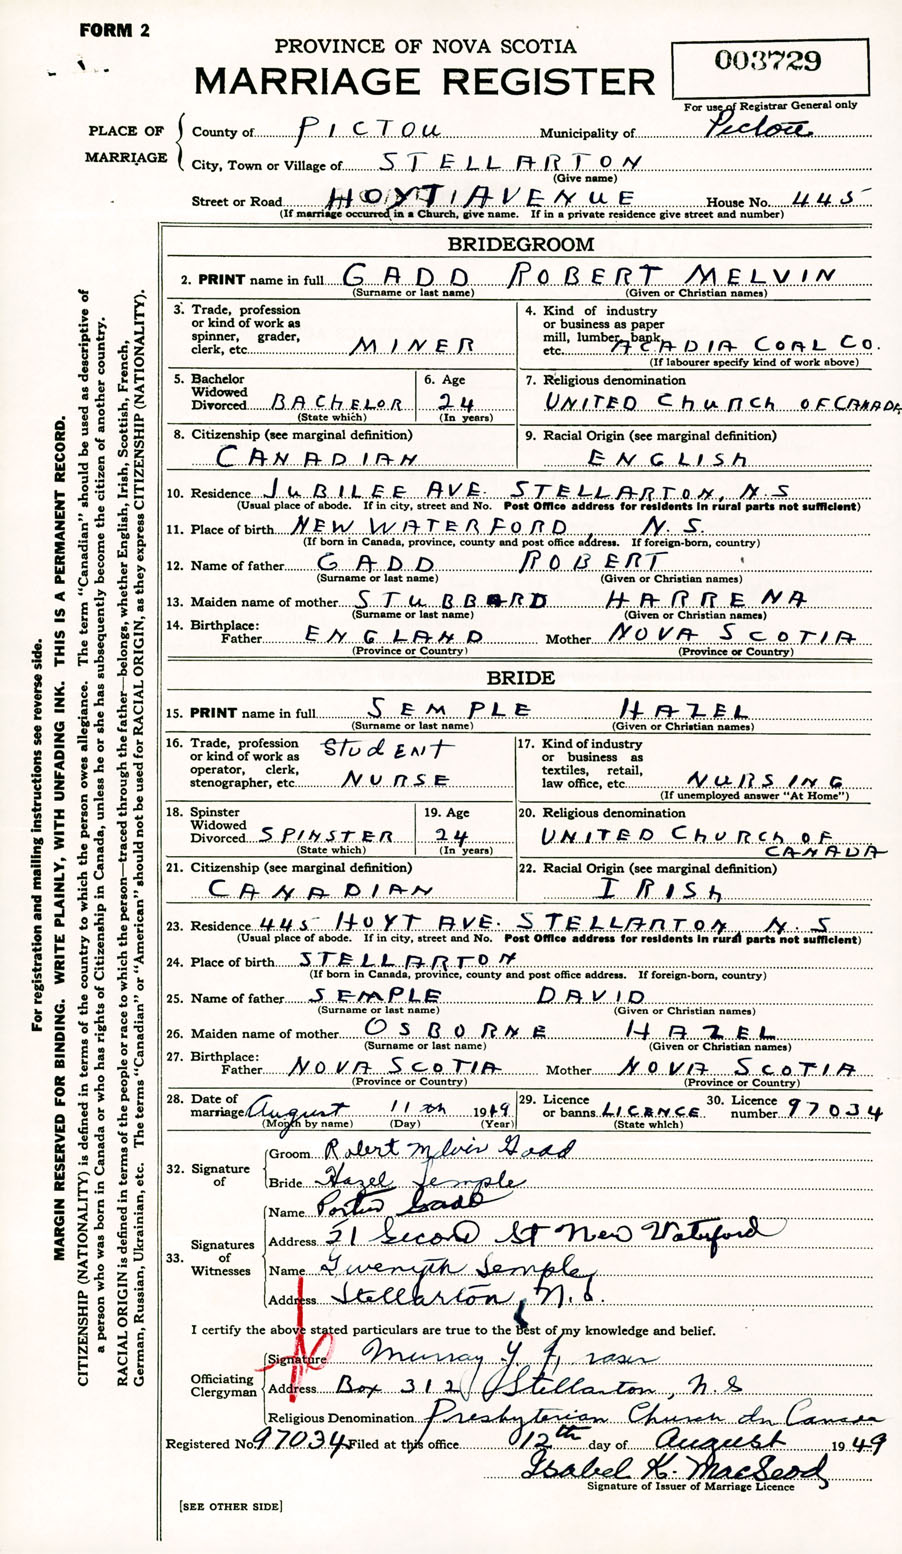 FORM 2
PROVINCE OF NOVA SCOTIA
MARRIAGE REGISTER
003729
For use of Registrar General only
PLACE OF MARRIAGE
County of PICTOU Municipality of Pictou
City, Town or Village of STELLARTON
(Give name)
Street or Road HOYT AVENUE House No. 445
(If marriage occurred in a Church, give name. If in a private residence give street and number)
BRIDEGROOM
2. PRINT name in full GADD ROBERT MELVIN
(Surname or last name) (Given or Christian names)
3. Trade, profession or kind of work as spinner, grader, clerk, etc. MINER
4. Kind of industry or business as paper mill, lumber, bank, etc. ACADIA COAL CO.
(If labourer specify kind of work above)
5. Bachelor Widowed Divorced BACHELOR
(State which)
6. Age 24
(In years)
7. Religious denomination
UNITED CHURCH OF CANADA
8. Citizenship (see marginal definition)
CANADIAN
9. Racial Origin (see marginal definition)
ENGLISH
10. Residence JUBILEE AVE. STELLARTON, N.S
(Usual place of abode. If in city, street and No. Post Office address for residents in rural parts not sufficient)
11. Place of birth NEW WATERFORD N.S.
(If born in Canada, province, county and post office address. If foreign-born, country)
12. Name of father GADD ROBERT
(Surname or last name) (Given or Christian names)
13. Maiden name of mother STUBBARD HARRENA
(Surname or last name) (Given or Christian names)
14. Birthplace:
Father ENGLAND Mother NOVA SCOTIA
(Province or Country) (Province or Country)
BRIDE
15. PRINT name in full SEMPLE HAZEL
(Surname or last name) (Given or Christian names)
16. Trade, profession or kind of work as operator, clerk, stenographer, etc. STUDENT NURSE
17. Kind of industry or business as textiles, retail, law office, etc. NURSING
(If unemployed answer "At Home")
18. Spinster Widowed Divorced SPINSTER
(State which)
19. Age 24
(In years)
20. Religious denomination
UNITED CHURCH OF CANADA
21. Citizenship (see marginal definition)
CANADIAN
22. Racial Origin (see marginal definition)
IRISH
23. Residence 445 HOYT AVE. STELLARTON, N.S
(Usual place of abode. If in city, street and No. Post Office address for residents in rural parts not sufficient)
24. Place of birth STELLARTON
(If born in Canada, province, county and post office address. If foreign-born, country)
25. Name of father SEMPLE DAVID
(Surname or last name) (Given or Christian names)
26. Maiden name of mother OSBORNE HAZEL
(Surname or last name) (Given or Christian names)
27. Birthplace:
Father NOVA SCOTIA Mother NOVA SCOTIA
(Province or Country) (Province or Country)
28. Date of marriage August 11th 1949
(Month by name) (Day) (Year)
29. Licence or banns LICENCE
(State which)
30. Licence number 97034
32. Signature of
Groom Robert Melvin Gadd
Bride Hazel Semple
33. Signatures of Witnesses
Name Porter Gadd
Address 51 Second St New Waterford
Name Gwenyth Semple
Address Stellarton, N.S.
I certify the above stated particulars are true to the best of my knowledge and belief.
Officiating Clergyman
Signature Murray Y. Fraser
Address Box 312 Stellarton, N.S
Religious Denomination Presbyterian Church In Canada
Registered No. 97034 Filed at this office 12th day of August 1949
Isabel K. MacLeod
Signature of Issuer of Marriage Licence
[SEE OTHER SIDE]
For registration and mailing instructions see reverse side.
MARGIN RESERVED FOR BINDING. WRITE PLAINLY, WITH UNFADING INK. THIS IS A PERMANENT RECORD.
CITIZENSHIP (NATIONALITY) is defined in terms of the country to which the person owes allegiance. The term "Canadian" should be used as descriptive of
a person who was born in Canada or who has rights of Citizenship in Canada, unless he or she has subsequently become the citizen of another country.
RACIAL ORIGIN is defined in terms of the people or race to which the person—traced through the father—belongs, whether English, Irish, Scottish, French,
German, Russian, Ukrainian, etc. The terms "Canadian" or "American" should not be used for RACIAL ORIGIN, as they express CITIZENSHIP (NATIONALITY).